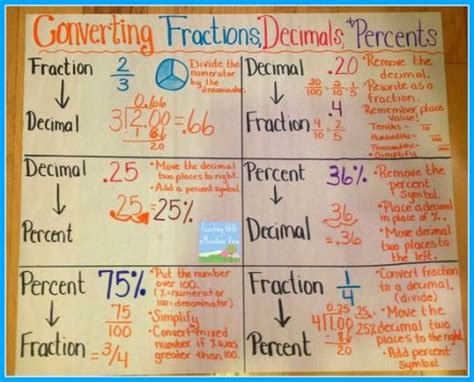 Converting Fractions, Decimals, & Percents
Fraction
↓
Decimal
2/3
Divide the
numerator
by the
denominator.
0.66
3)2.00 = .66
-18
20
Decimal
↓
Fraction
.20
20/100 = 2/10 = 1/5
.4
4/10 = 2/5
•Remove the
decimal.
•Rewrite as a
fraction.
•Remember place
value!
Tenths =
Hundredths =
Thousandths =
•Simplify
Decimal
↓
Percent
.25
•Move the decimal
two places to right.
•Add a percent symbol.
.25 = 25%
Teaching With
a Mountain View
Percent
↓
Decimal
36%
36.
= .36
•Remove the
percent
symbol.
•Place a decimal
in place of %.
•Move decimal
two places to
the left.
Percent
↓
Fraction
75%
75/100
= 3/4
•Put the number
over 100.
(% = numerator
100 = denominator)
•Simplify
•Convert mixed
number if % was
greater than 100.
Fraction
↓
Percent
1/4
0.25
4)1.00 = 25%
•Convert fraction
to a decimal.
(divide)
•Move the
decimal two
places to the right.
•Add percent
symbol